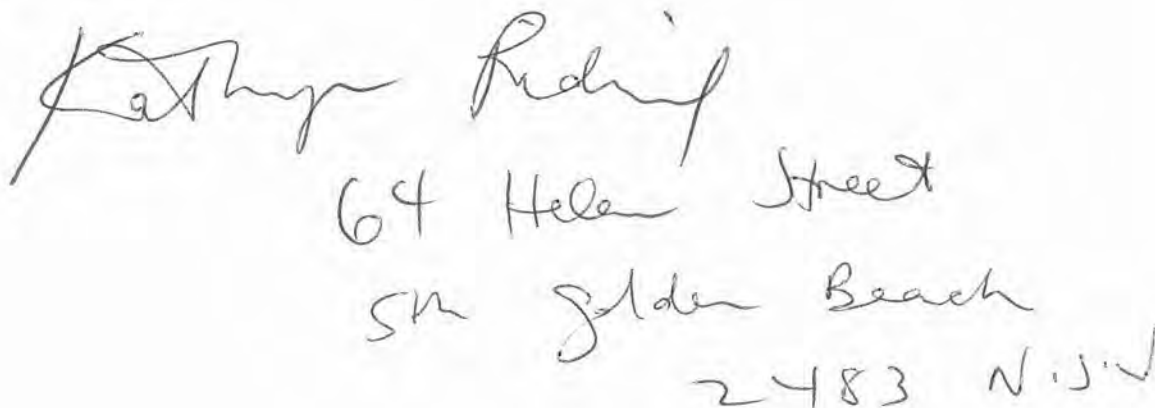 Kathryn Riding
64 Helen Street
Sth Golden Beach
2483 N.S.W